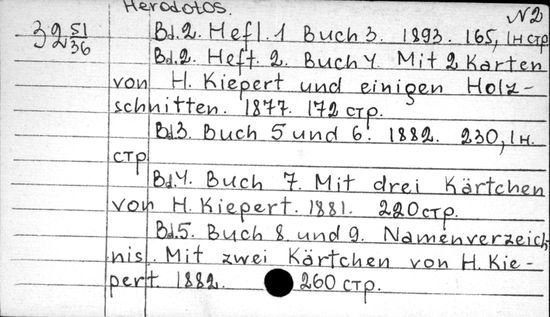 Herodotos.
N2
32 51/36
Bd.2. Hefl.1 Buch 3. 1893. 165, 1н стр
Bd.2. Heft. 2. Buch 4. Mit 2 Karten
von H. Kiepert und einigen Holz-
schnitten. 1877. 172 стр.
Bd3. Buch 5 und 6. 1882. 230, 1н.
стр
Bd.4. Buch 7. Mit drei Kärtchen
von H. Kiepert. 1881. 220 стр.
Bd.5. Buch 8 und 9. Namenverzeich-
nis. Mit zwei Kärtchen von H. Kie-
pert. 1882. 260 стр.